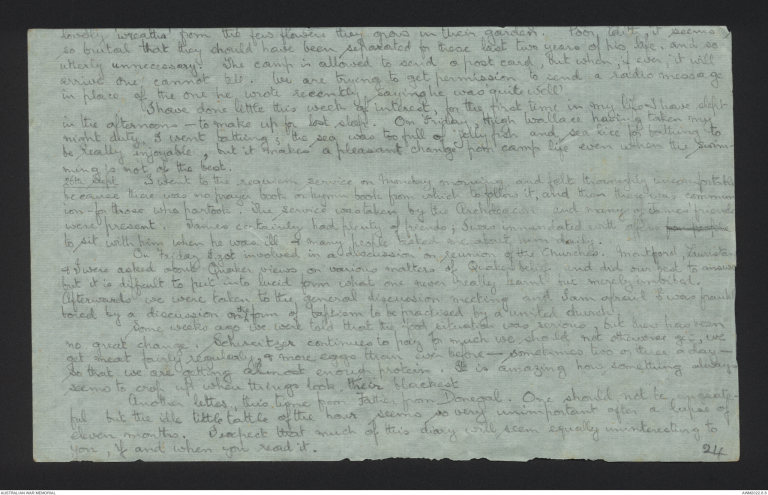 lovely wreaths from the few flowers they grow in their garden. Poor , it seems
so brutal that they should have been separated for these last two years of his life, and so
utterly unnecessary. The camp is allowed to send a post card, but when, & ever, it will
arrive one cannot tell. We are trying to get permission to send a radio message
in place of the one he wrote recently, saying he was quite well!
I have done little this week of interest, for the first time in my life I have slept
in the afternoons - to make up for lost sleep. On Friday, Hugh Wallace having taken my
night duty, I went bathing; the sea was too full of jelly fish and sea lice for bathing to
be really enjoyable, but it makes a pleasant change from camp life even when the swim-
ming is not of the best.
26th Sept. I went to the requiem service on Monday morning and felt thoroughly uncomfortable
because there was no prayer book or hymn book from which to follow it, and then there was commun-
ion for those who partook. The service was taken by the Archdeacon and many of James' friends
were present. James certainly had plenty of friends; I was inundated with offers
to sit with him when he was ill & many people asked me about him daily.
On Friday I got involved in a discussion on reunion of the Churches. Montford,
& I were asked about Quaker views on various matters of Quaker belief and did our best to answer
but it is difficult to put into lucid form what one never really learnt but merely imbibed.
Afterwards we were taken to the general discussion meeting and I am afraid I was frankly
bored by a discussion on the form of baptism to be practised by a united church!
Some weeks ago we were told that the food situation was serious, but there has been
no great change. Schweitzer continues to pay for much we should not otherwise get, we
get meat fairly regularly, & more eggs than ever before - sometimes two or three a day -
so that we are getting almost enough protein. It is amazing how something always
seems to crop up when things look their blackest.
Another letter, this time from Father from Donegal. One should not be ungrate-
ful but the idle tittle tattle of the hour seems so very unimportant after a lapse of
eleven months. I expect that much of this diary will seem equally uninteresting to
you, if and when you read it.
24
AUSTRALIAN WAR MEMORIAL